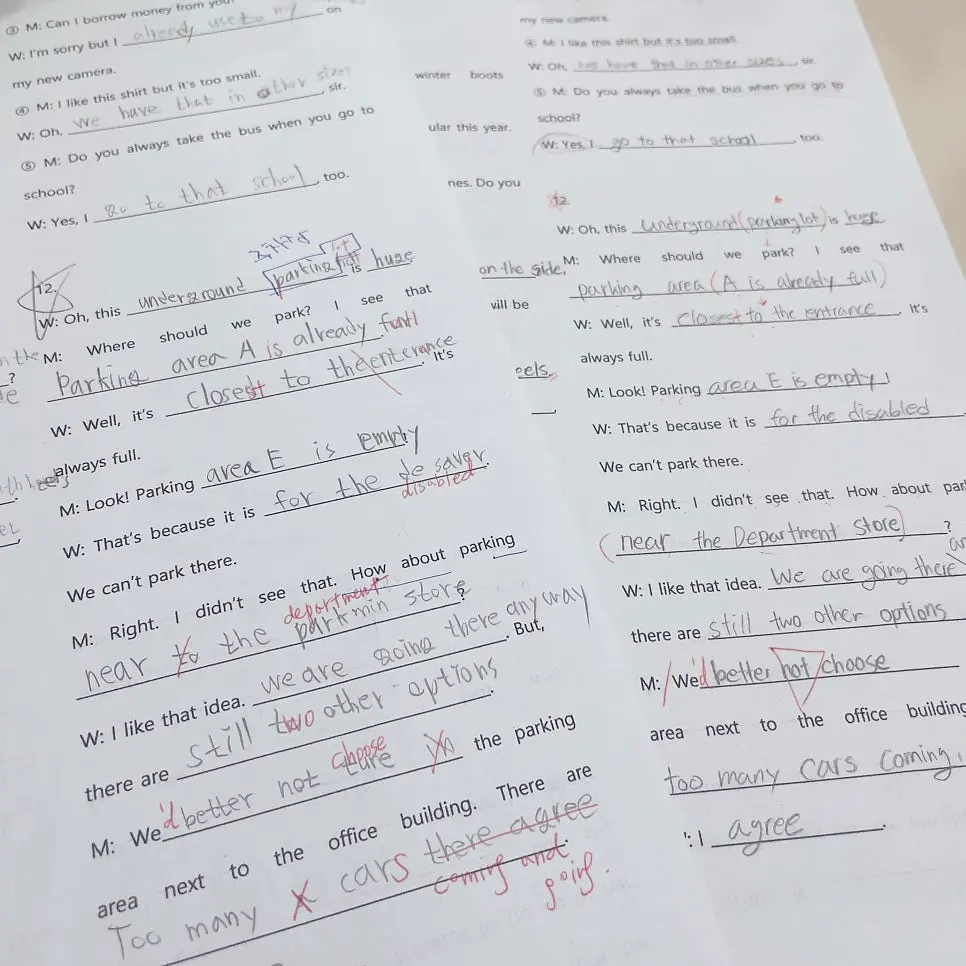 ③ M: Can I borrow money from you?
W: I'm sorry but I already use to my on
my new camera.
④ M: I like this shirt but it's too small.
W: Oh, we have that in other sizes, sir.
⑤ M: Do you always take the bus when you go to
school?
W: Yes, I go to that school, too.
12.
W: Oh, this underground parking lot is huge
M: Where should we park? I see that
Parking area A is already full.
W: Well, it's closest to the enterance. It's
always full.
M: Look! Parking area E is empty
W: That's because it is for the de saver.
disabled
We can't park there.
M: Right. I didn't see that. How about parking
department
near to the parkmin store?
W: I like that idea. we are going there anyway. But,
there are still two other options.
choose
M: We'd better not ture in the parking
area next to the office building. There are
Too many cars there agree.
coming and
going.
my new camera.
④ M: I like this shirt but it's too small.
W: Oh, we have that in other sizes, sir.
⑤ M: Do you always take the bus when you go to
school?
W: Yes, I go to that school, too.
12
W: Oh, this underground (parking lot) is huge
M: Where should we park? I see that
parking area (A is already full)
W: Well, it's closest to the entrance. It's
always full.
M: Look! Parking area E is empty!
W: That's because it is for the disabled.
We can't park there.
M: Right. I didn't see that. How about par
(near the Department store)?
W: I like that idea. We are going there
there are still two other options
M: We'd better not choose
area next to the office building
too many cars coming.
: I agree.
winter boots
ular this year.
nes. Do you
on the side.
will be
eels.